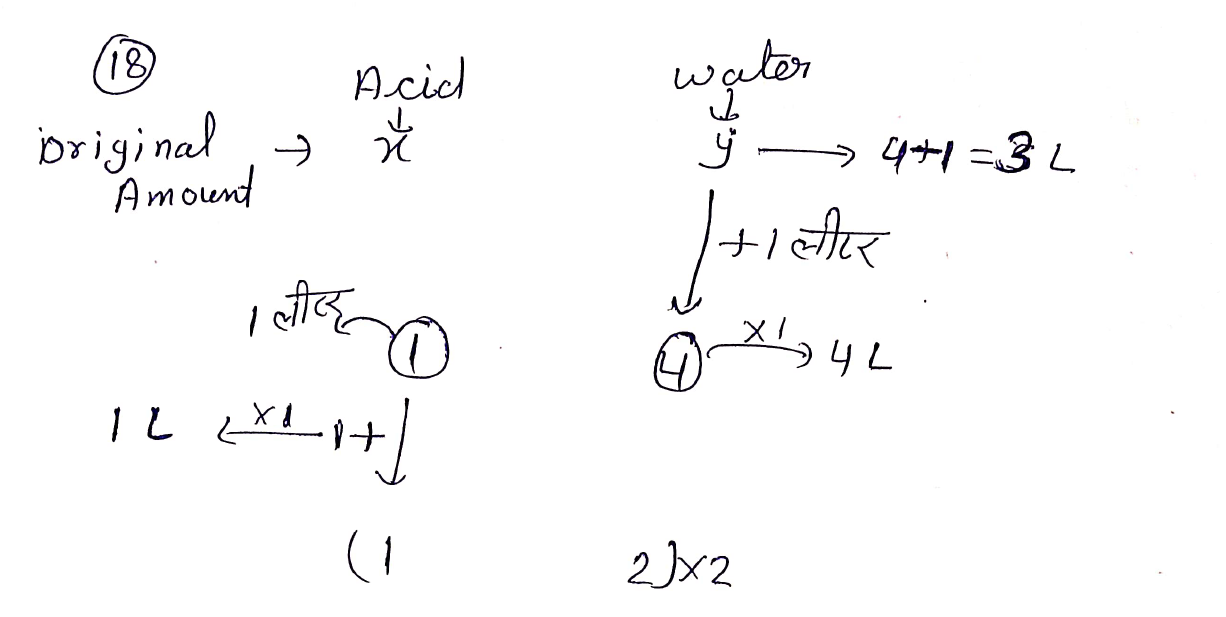 18
Acid water
original → x y → 4+1 = 3 L
Amount
+1 लीटर
1 लीटर 1 4 ×1 → 4 L
1 L ← ×1 1+
(1 2)×2